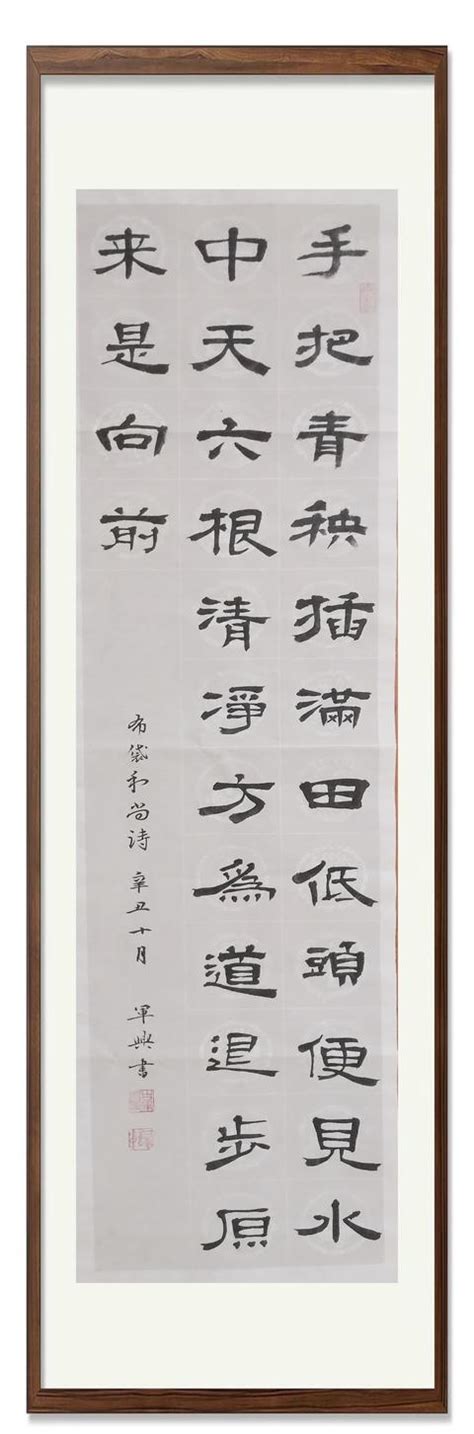 手把青秧插滿田低頭便見水
中天六根清淨方為道退步原
来是向前
布袋和尚詩 辛丑十月 軍興書